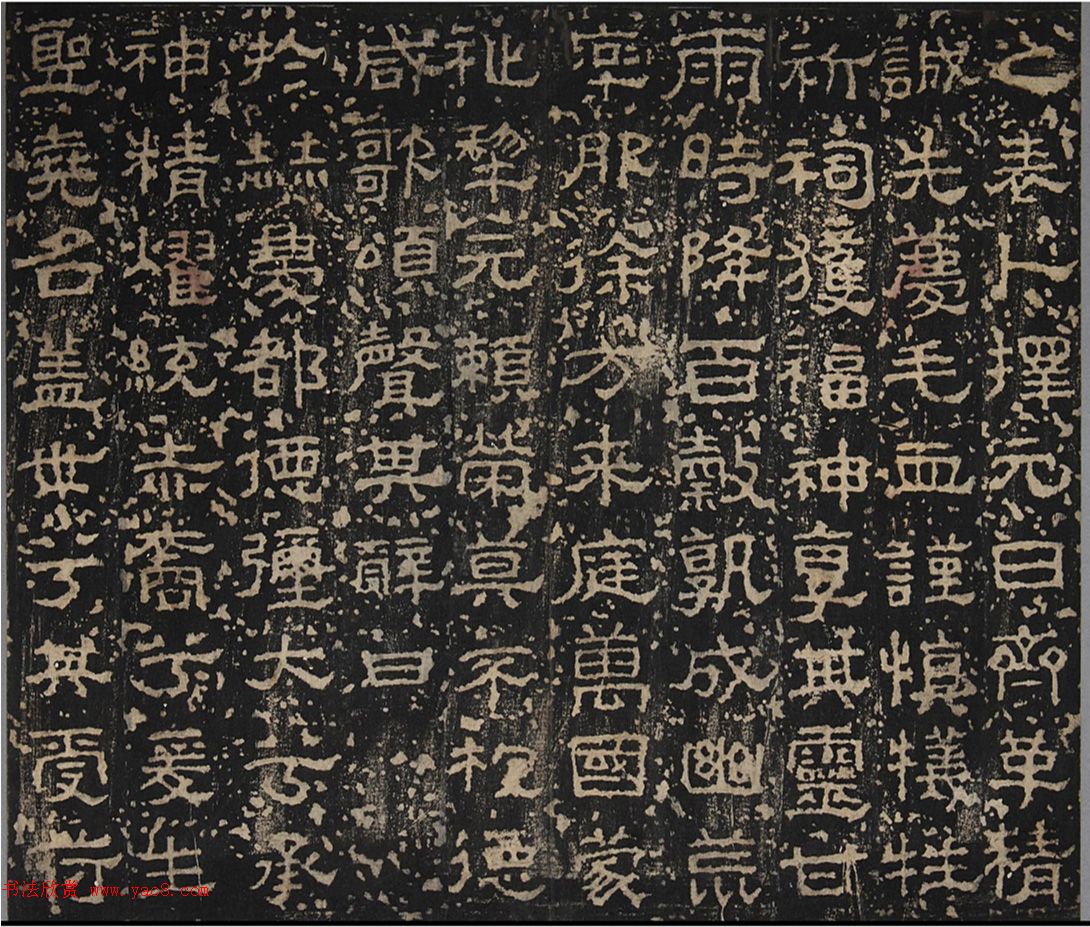 之表卜擇元日齊革精
誠先薦毛血謹慎犧牲
祈祠獲福神享其靈甘
雨時降百穀孰成幽荒
率服徐方來庭萬國蒙
祉犂元賴榮莫不被德
咸歌頌聲其辭曰
於赫慶都德彌大兮承
神精燿統赤裔兮爰生
聖堯名蓋世兮其受
书法欣赏 www.yac8.com